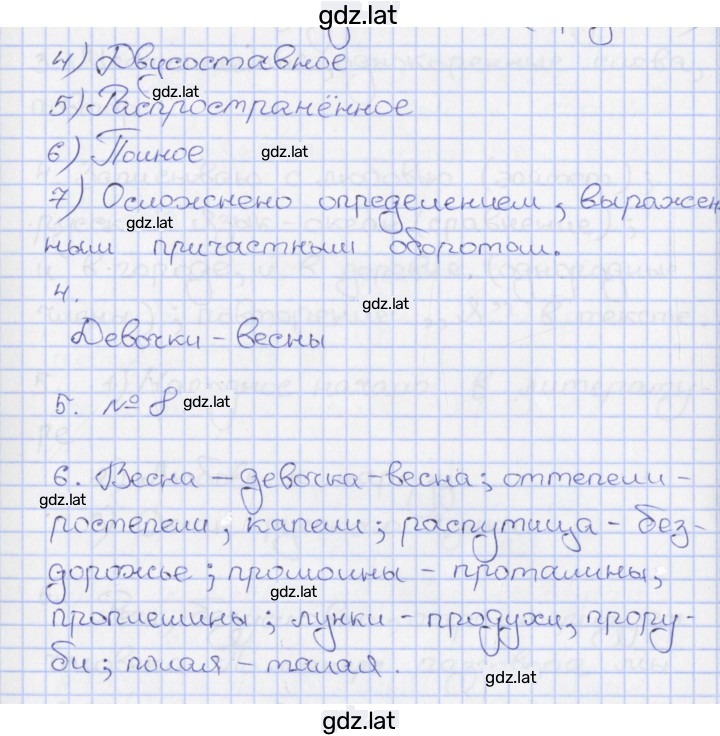 gdz.lat
4) Двусоставное
gdz.lat
5) Распространённое
6) Полное gdz.lat
7) Осложнено определением, выражен
gdz.lat
ным причастным оборотом.
4. gdz.lat
Девочки-весны
5. № 8 gdz.lat
6. Весна – девочка-весна; оттепели –
gdz.lat
ростепели; капели; распутица – без-
дорожье; промоины – проталины,
gdz.lat
проплешины; лунки – продухи, прору-
би; полая – талая.
gdz.lat
gdz.lat